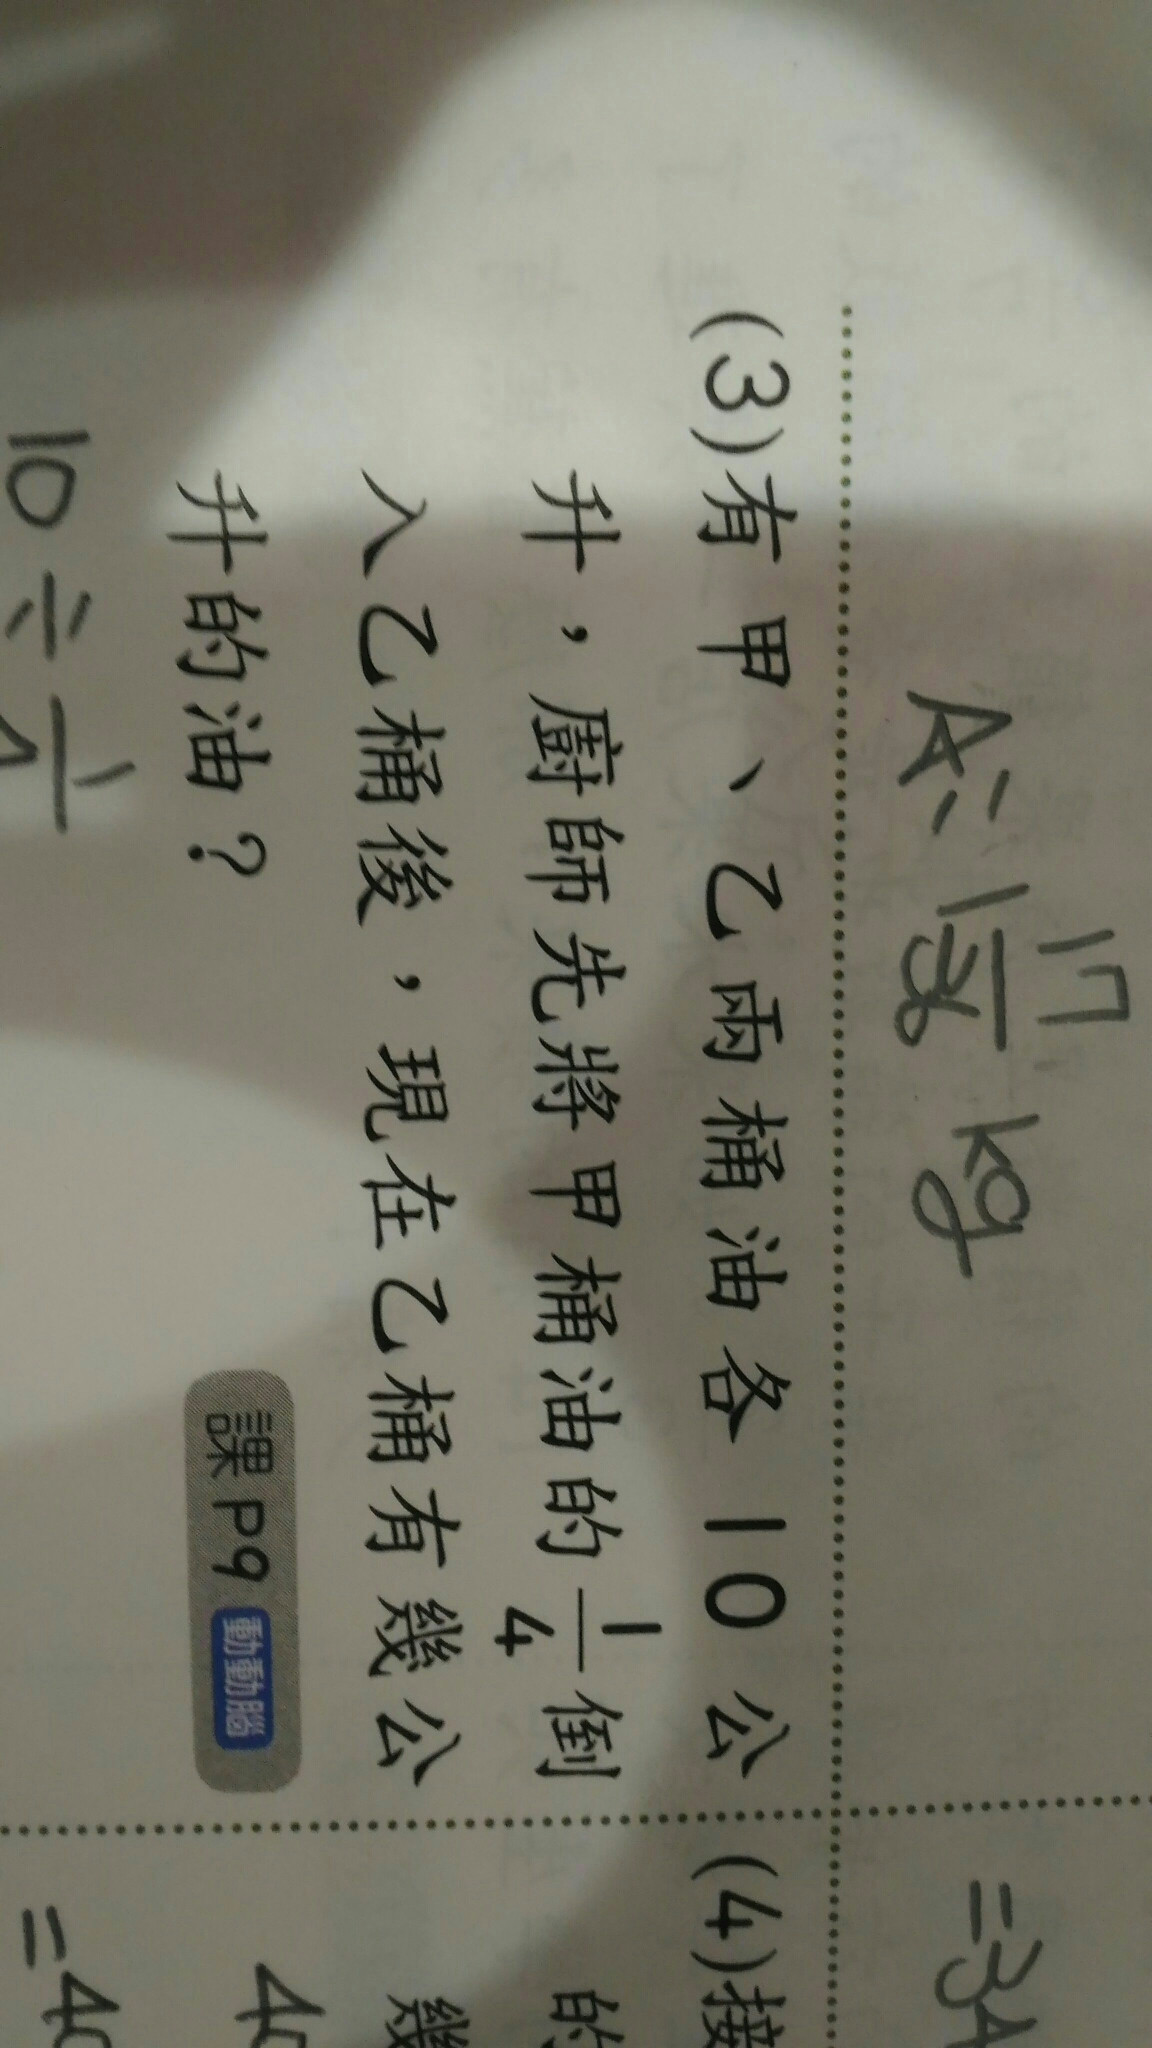 A: 1 17/28 kg
=34
(3)有甲、乙兩桶油各10公
升，廚師先將甲桶油的1/4倒
入乙桶後，現在乙桶有幾公
升的油？
課P9 動動腦
10÷1/
(4)接
的
幾
=40